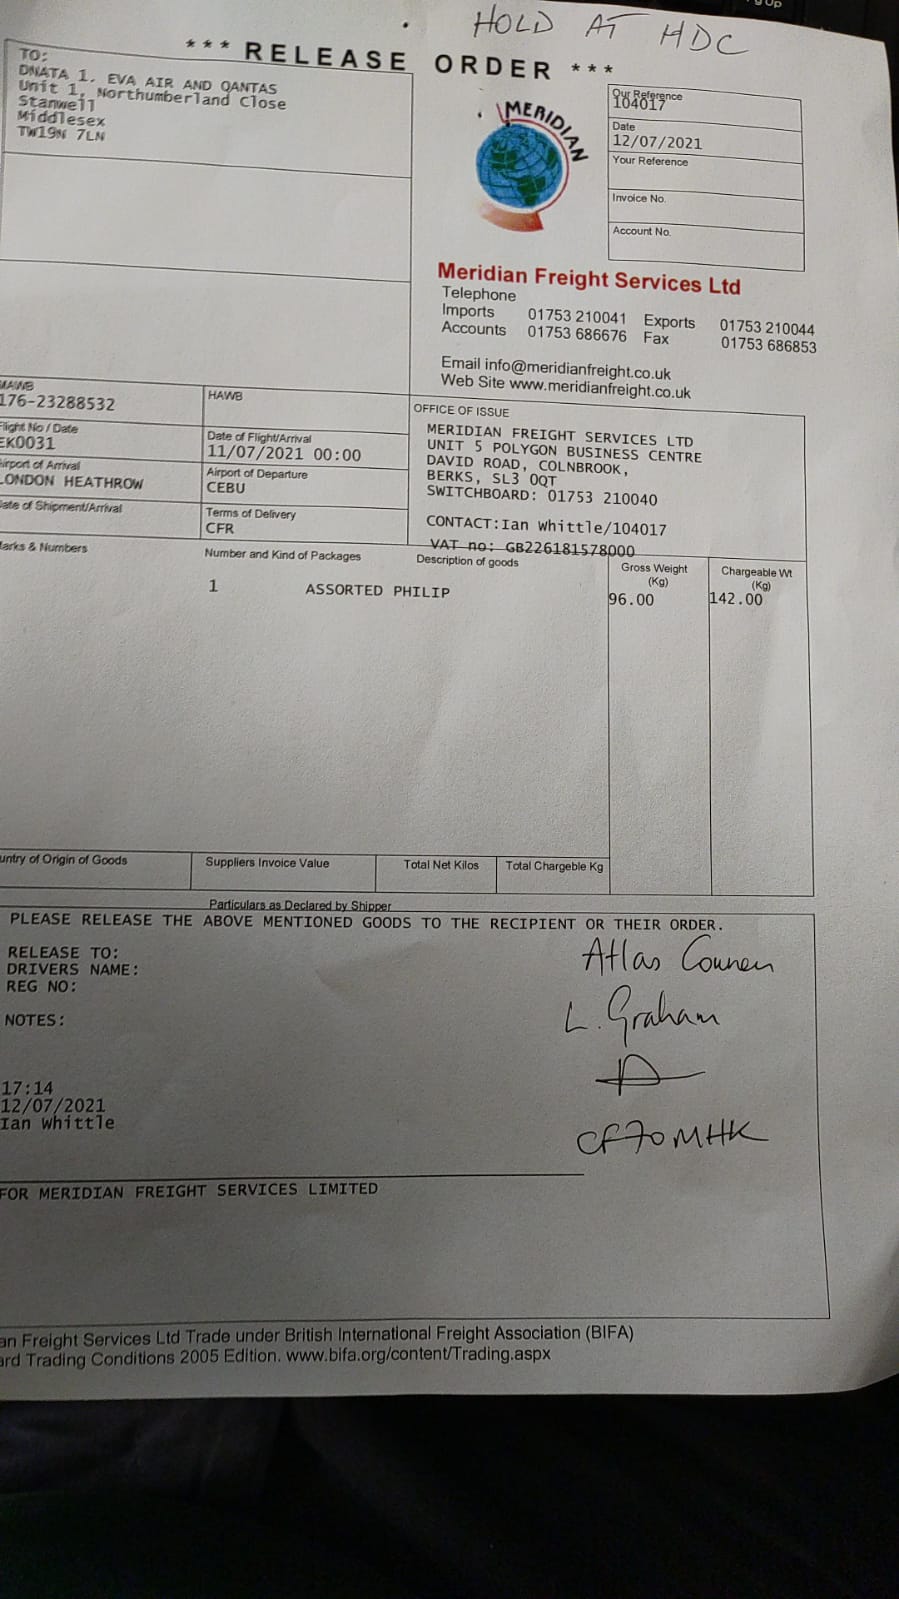 HOLD AT HDC
*** RELEASE ORDER ***
TO:
DNATA 1, EVA AIR AND QANTAS
Unit 1, Northumberland Close
Stanwell
Middlesex
TW19N 7LN
MERIDIAN
Our Reference
104017
Date
12/07/2021
Your Reference
Invoice No.
Account No.
Meridian Freight Services Ltd
Telephone
Imports 01753 210041 Exports 01753 210044
Accounts 01753 686676 Fax 01753 686853
Email info@meridianfreight.co.uk
Web Site www.meridianfreight.co.uk
MAWB
176-23288532
HAWB
Flight No / Date
EK0031
Date of Flight/Arrival
11/07/2021 00:00
Airport of Arrival
LONDON HEATHROW
Airport of Departure
CEBU
Date of Shipment/Arrival
Terms of Delivery
CFR
OFFICE OF ISSUE
MERIDIAN FREIGHT SERVICES LTD
UNIT 5 POLYGON BUSINESS CENTRE
DAVID ROAD, COLNBROOK,
BERKS, SL3 0QT
SWITCHBOARD: 01753 210040
CONTACT:Ian Whittle/104017
VAT no: GB226181578000
Marks & Numbers
Number and Kind of Packages
Description of goods
Gross Weight
(Kg)
Chargeable Wt
(Kg)
1 ASSORTED PHILIP 96.00 142.00
untry of Origin of Goods
Suppliers Invoice Value
Total Net Kilos
Total Chargeble Kg
Particulars as Declared by Shipper
PLEASE RELEASE THE ABOVE MENTIONED GOODS TO THE RECIPIENT OR THEIR ORDER.
RELEASE TO:
DRIVERS NAME:
REG NO:
NOTES:
Atlas
L. Graham
CF70MHK
17:14
12/07/2021
Ian Whittle
FOR MERIDIAN FREIGHT SERVICES LIMITED
an Freight Services Ltd Trade under British International Freight Association (BIFA)
ard Trading Conditions 2005 Edition. www.bifa.org/content/Trading.aspx